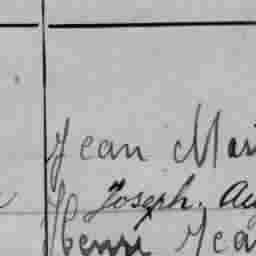 Jean Mari
Joseph. Au
Henri Jea